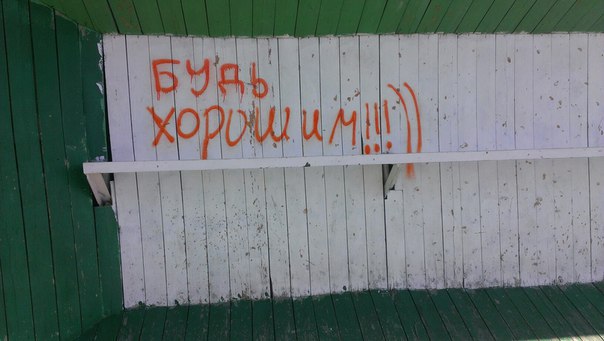 БУДЬ
ХОРОШИМ!!!))